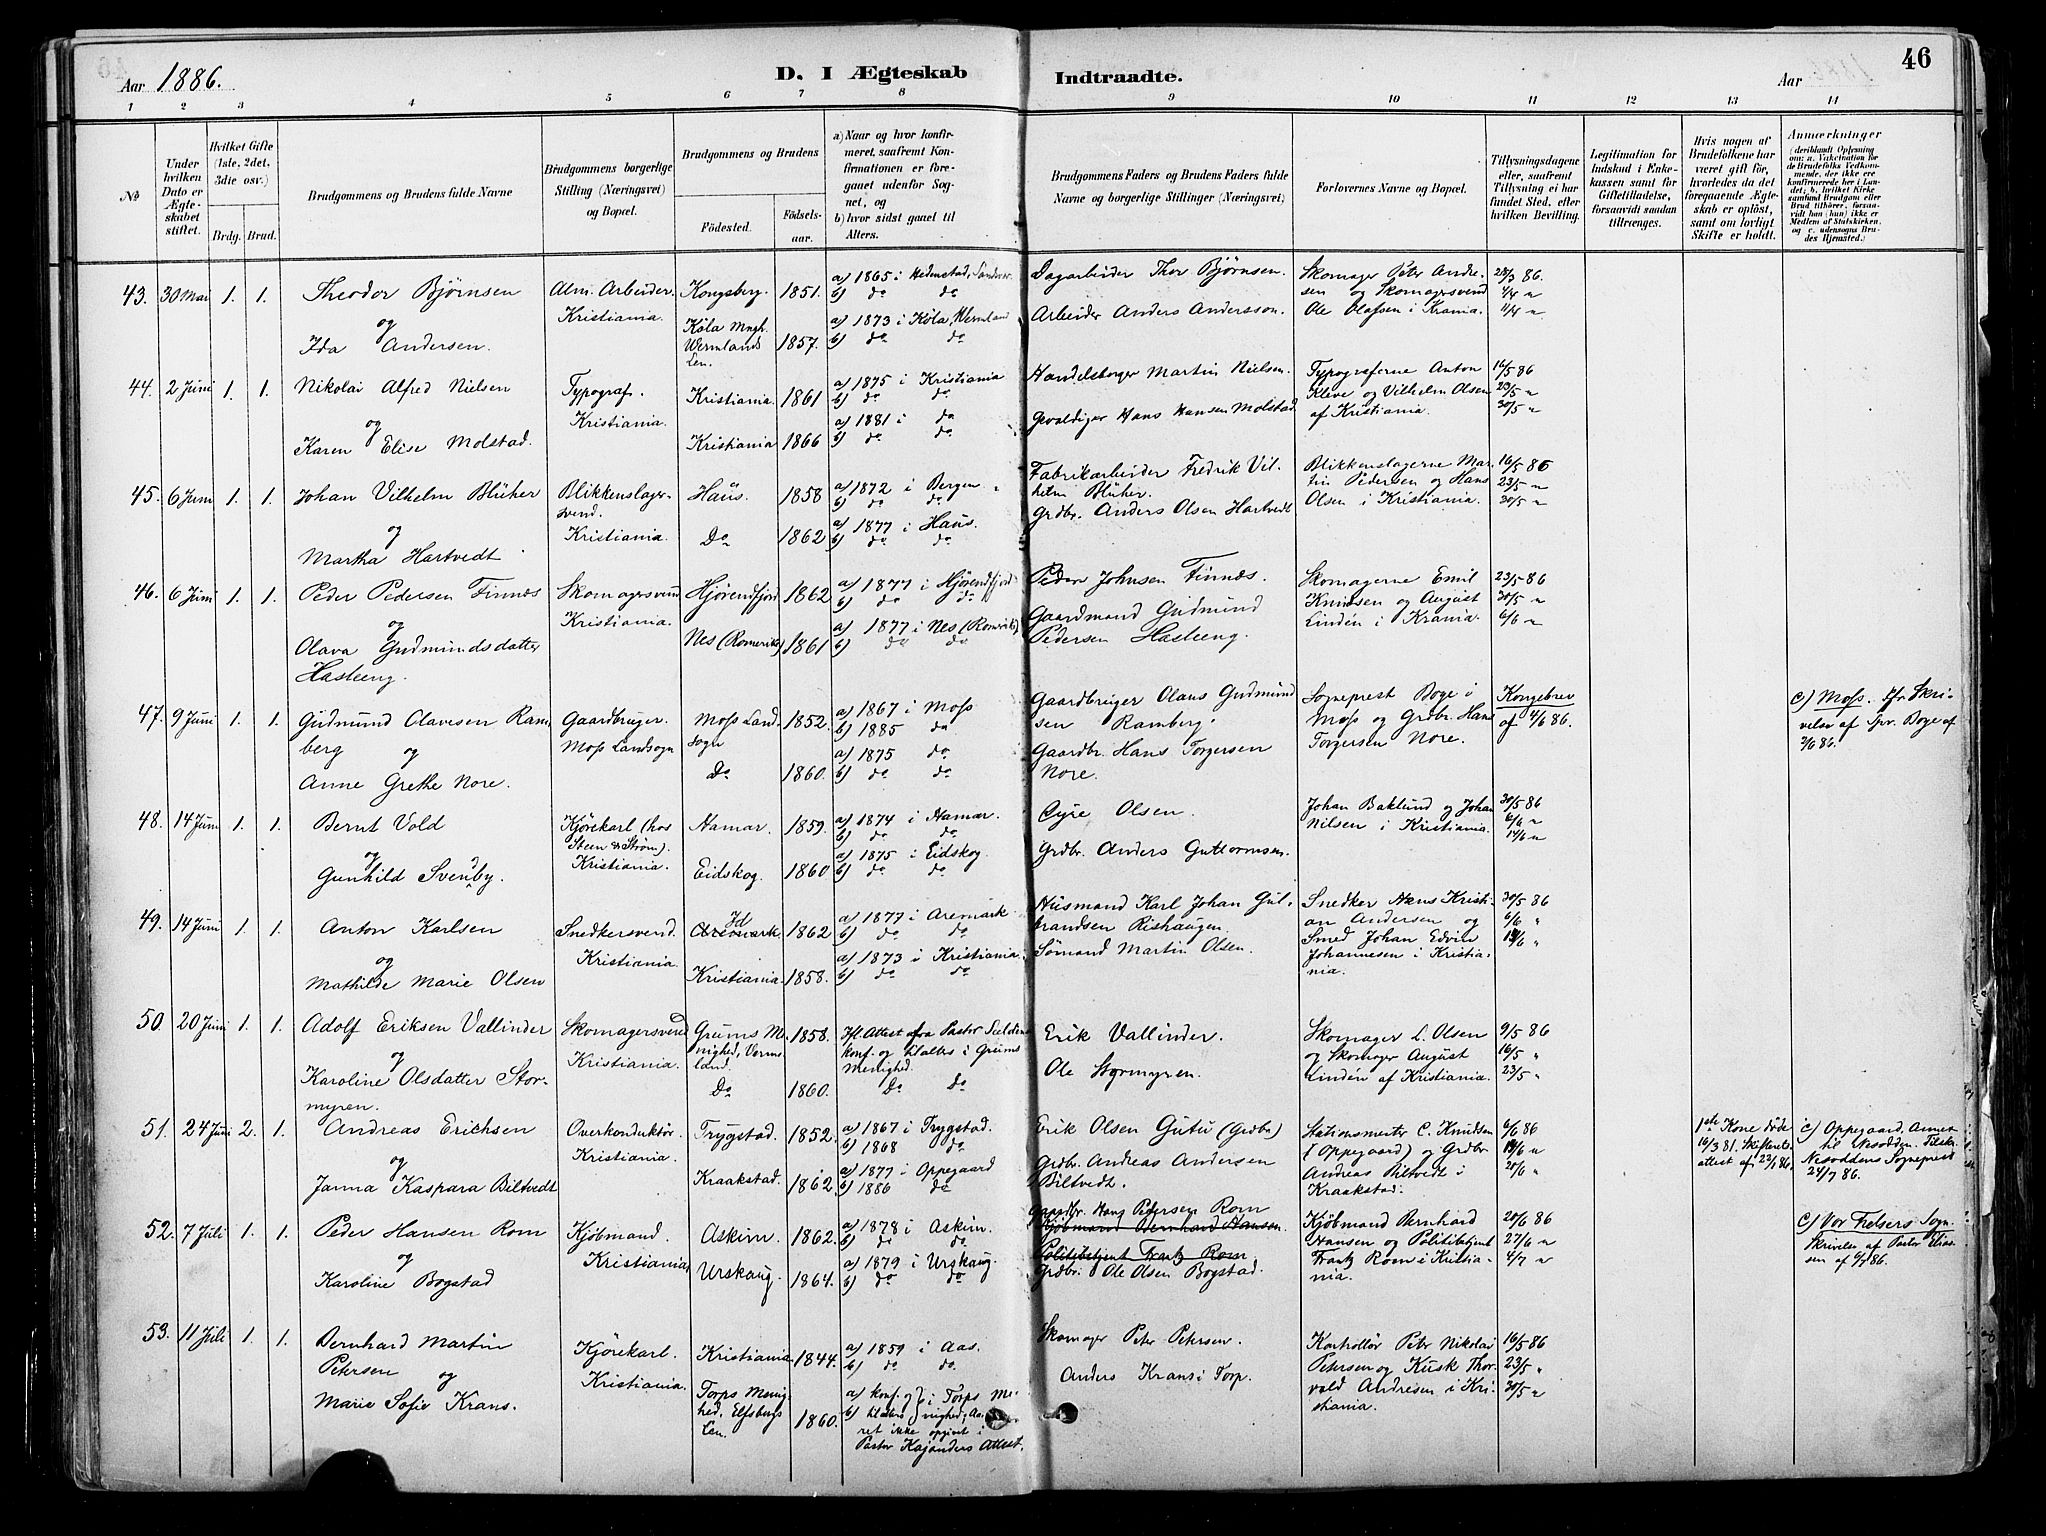 Aar 1886. D. I Ægteskab Indtraadte. Aar 46
1 2 3 4 5 6 7 8 9 10 11 12 13 14
No.
Under hvilken Dato er Ægteskabet stiftet.
Hvilket Gifte (1ste, 2det, 3die osv.)
Brdg. Brud.
Brudgommens og Brudens fulde Navne
Brudgommens borgerlige Stilling (Næringsvei) og Bopæl.
Brudgommens og Brudens
Fødested. Fødselsaar.
a) Naar og hvor konfirmeret, saafremt Konfirmationen er foregaaet udenfor Sognet, og
b) hvor sidst gaaet til Alters.
Brudgommens Faders og Brudens Faders fulde Navne og borgerlige Stillinger (Næringsvei)
Forlovernes Navne og Bopæl.
Tillysningsdagene eller, saafremt Tillysning ei har fundet Sted, efter hvilken Bevilling.
Legitimation for Indskud i Enkekassen samt for Giftetilladelse, forsaavidt saadan tiltrænges.
Hvis nogen af Brudefolkene har været gift før, hvorledes da det foregaaende Ægteskab er opløst, samt om lovligt Skifte er holdt.
Anmærkninger (deriblandt Oplysning om: a. Vakcination for de Brudefolks Vedkommende, der ikke ere konfirmerede her i Landet; b. hvilket Kirkesamfund Brudgom eller Brud tilhører, forsaavidt han (hun) ikke er Medlem af Statskirken, og c. udensogns Brudes Hjemsted.)
43. 30 Mai 1. 1. Theodor Bjørnsen
og
Ida Andersen.
Alm. Arbeider.
Kristiania.
Kongsberg. 1851.
Köla Mngh. Wermlands Len. 1857.
a) 1865 i Hedenstad, Sandsvær
b) do do
a) 1873 i Köla, Wermland
b) do do
Dagarbeider Thor Bjørnsen.
Arbeider Anders Andersson.
Skomager Peter Andre-
sen og Skomagersvend
Ole Olafsen i Krania.
28/3 86.
4/4 "
11/4 "
44. 2 Juni 1. 1. Nikolai Alfred Nielsen
og
Karen Elise Molstad.
Typograf.
Kristiania.
Kristiania. 1861
Kristiania 1866
a) 1875 i Kristiania
b) do do
a) 1881 i do
b) do do
Handelsborger Martin Nielsen.
Gevaldiger Hans Hansen Molstad.
Typograferne Anton
Kleve og Vilhelm Olsen
af Kristiania.
16/5 86
23/5 "
30/5 "
45. 6 Juni 1. 1. Johan Vilhelm Blüher
og
Martha Hartvedt
Blikkenslager-
svend.
Kristiania.
Haüs. 1858
Do 1862
a) 1872 i Bergen
b) do do
a) 1877 i Haus.
b) do do
Fabrikarbeider Fredrik Vil-
helm Blüher.
Grdbr. Anders Olsen Hartvedt
Blikkenslagerne Mar-
tin Pedersen og Hans
Olsen i Kristiania.
16/5 86
23/5 "
30/5 "
46. 6 Juni 1. 1. Peder Pedersen Finnes
og
Olava Gudmundsdatter
Hasleeng.
Skomagersvend
Kristiania.
Hjørendfjord 1862
Nes (Romerike) 1861
a) 1877 i Hjørendfjord
b) do do
a) 1877 i Nes (Romerike)
b) do do
Peder Johnsen Finnes.
Gaardmand Gudmund
Pedersen Hasleeng.
Skomagerne Emil
Knudsen og August
Lindén i Krania.
23/5 86
30/5 "
6/6 "
47. 9 Juni 1. 1. Gudmund Olavesen Ram-
berg og
Anne Grethe Nore.
Gaardbruger.
Moss Landsogn
Moss Land-
sogn 1852.
Do 1860.
a) 1867 i Moss
b) 1885 do
a) 1875 do
b) do do
Gaardbruger Olaus Gudmund
sen Ramberg.
Gaardbr. Hans Torgersen
Nore.
Sogneprest Boge i
Moss og Grdbr. Hans
Torgersen Nore.
Kongebrev
af 4/6 86.
c) Moss. Jfr Skri-
velse af Spr. Boge af
86.
48. 14 Juni 1. 1. Bernt Vold
og
Gunhild Svendby.
Kjørekarl (hos
Steen & Strøm).
Kristiania.
Hamar. 1859.
Eidskog. 1860
a) 1874 i Hamar.
b) do do
a) 1875 i Eidskog.
b) do do
Olsen.
Grdbr. Anders Guttormsen.
Johan Baklund og Johan
Nilsen i Kristiania.
30/5 86
6/6 "
14/6 "
49. 14 Juni 1. 1. Anton Karlsen
og
Mathilde Marie Olsen
Snedkersvend.
Kristiania.
Id
Aremark. 1862
Kristiania 1858.
a) 1877 i Aremark
b) do do
a) 1873 i Kristiania.
b) do do
Husmand Karl Johan Gul-
brandsen Rishaugen.
Sømand Martin Olsen.
Snedker Hans Kristi-
an Andersen og
Smed Johan Edvin
Johannesen i Kristia-
nia.
30/5 86
6/6 "
14/6 "
50. 20 Juni 1. 1. Adolf Eriksen Vallinder
og
Karoline Olsdatter Stor-
myren.
Skomagersvend
Kristiania.
Grums Me-
nighed, Verms-
land. 1858.
Do 1860.
Ifl. Attest fra Pastor
konf. og til alters i Grums
Menighed.
Do do
Erik Vallinder.
Ole Stormyren.
Skomager L. Olsen
og Skomager August
Lindén af Kristiania.
9/5 86
16/5 "
23/5 "
51. 24 Juni 2. 1. Andreas Erichsen
og
Janna Kaspara Biltvedt
Overkonduktør.
Kristiania.
Trygstad. 1852.
Kraakstad. 1862.
a) 1867 i Trygstad.
b) 1868 do
a) 1877 i Oppegaard
b) 1886 do
Erik Olsen Gutu (Grdbr)
Grdbr. Andreas Andersen
Biltvedt.
Stationsmester C. Knudsen
(Oppegaard) og Grdbr
Andreas Biltvedt i
Kraakstad.
6/6 86
14/6 "
20/6 "
1ste Kone døde
16/3 81. Skifterets-
attest af 22/1 86.
c) Oppegaard. Annex
til Nesodden. Tilskr.
Nesoddens Sogneprest
24/7 86.
52. 7 Juli 1. 1. Peder Hansen Rom
og
Karoline Bogstad
Kjøbmand.
Kristiania
Askim. 1862.
Urskaug. 1864.
a) 1878 i Askim.
b) do do
a) 1879 i Urskaug.
b) do do
Gaardbr. Hans Petersen Rom
Kjøbmand Bernhard Hansen
Politibetjent Frantz Rom
Grdbr. Ole Olsen Bogstad.
Kjøbmand Bernhard
Hansen og Politibetjent
Frantz Rom i Kristia-
nia.
20/6 86
27/6 "
4/7 "
c) Vor Frelsers Sogn.
Skrivelse af Pastor Elias-
sen af 86.
53. 11 Juli 1. 1. Bernhard Martin
Petersen og
Marie Sofie Krans.
Kjørekarl.
Kristiania.
Kristiania. 1844.
Torps Menig-
hed, Elfsborgs
Len. 1860.
a) 1859 i Aas.
b) do do.
a) konf. og i Torps Me-
b) til alters nighed; Aa-
ret ikke opgivet i
Pastor Kajanders Attest.
Skomager Peter Petersen.
Anders Krans i Torp.
Kontrollør Peter Nikolai
Petersen og Kusk Thor-
vald Andresen i Kri-
stiania.
16/5 86
23/5 "
30/5 "